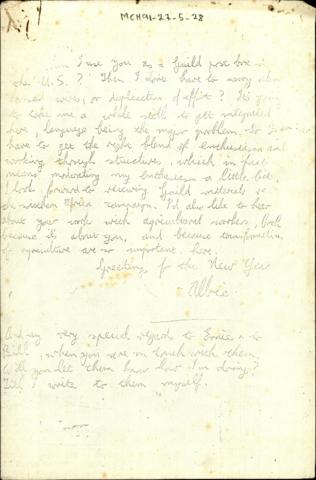 MCH91-27-5-28
Can I use you as a Guild post box in
the U.S.? Then I won't have to worry about
crossed wires, or duplication of effort? It's going
to take me a while still to get integrated
here, language being the major problem. So I
have to get the right blend of enthusiasm and
working through structures, which in fact
means moderating my enthusiasm a little bit.
I look forward to receiving Guild materials on
the southern Africa campaign. I'd also like to hear
about your work with agricultural workers, both
because it's about you, and because transformation
of agriculture are so important here.
Greetings for the New Year
Albie
And my very special regards to Ernie & to
Bill, when you are in touch with them.
Will you let them know how I'm doing?
I write to them myself.